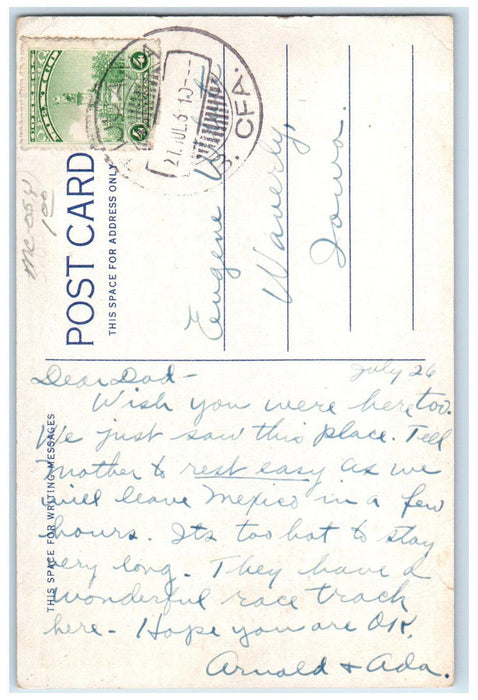 POST CARD
THIS SPACE FOR ADDRESS ONLY
21.JUL.6 10
CFA.
MC-054
1 00
Eugene
Waverly,
Iowa.
July 26
Dear Dad-
Wish you were here too.
We just saw this place. Tell
Mother to rest easy as we
will leave Mexico in a few
hours. Its too hot to stay
very long. They have a
wonderful race track
here- Hope you are OK.
Arnold + Ada.
THIS SPACE FOR WRITING MESSAGES